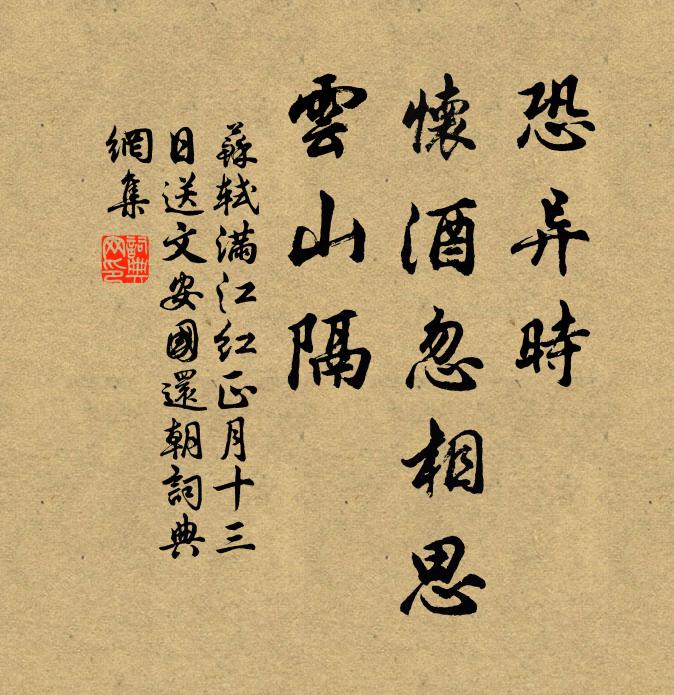 恐异時
懷酒忽相思
雲山隔
蘇軾滿江红正月十三
日送文安國還朝詞典
網集
詞典网印